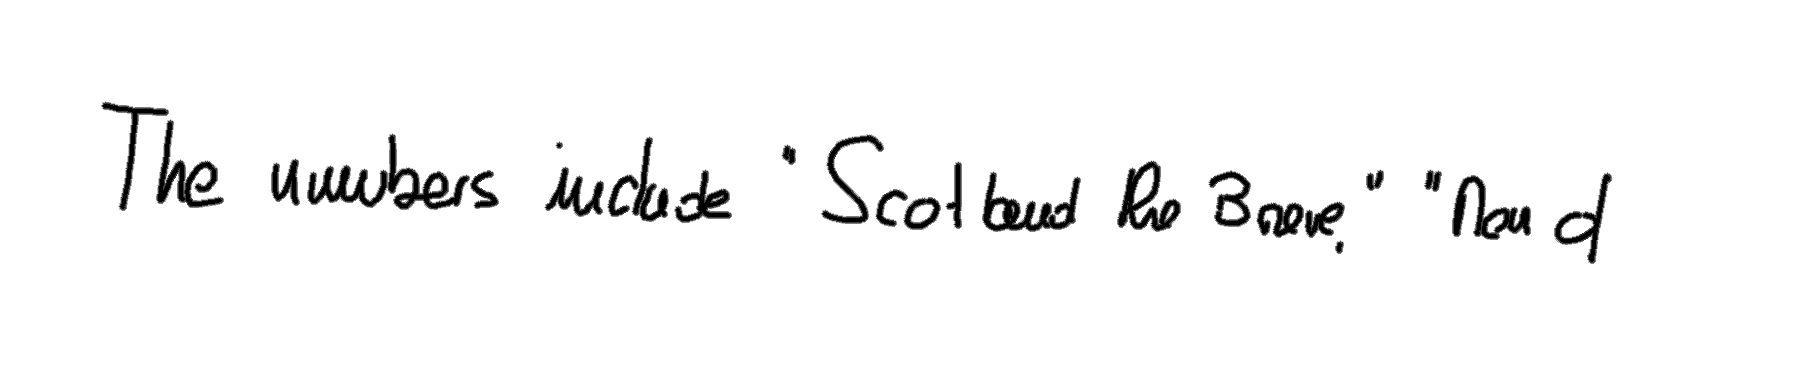 The numbers include "Scotland the Brave," "Man d